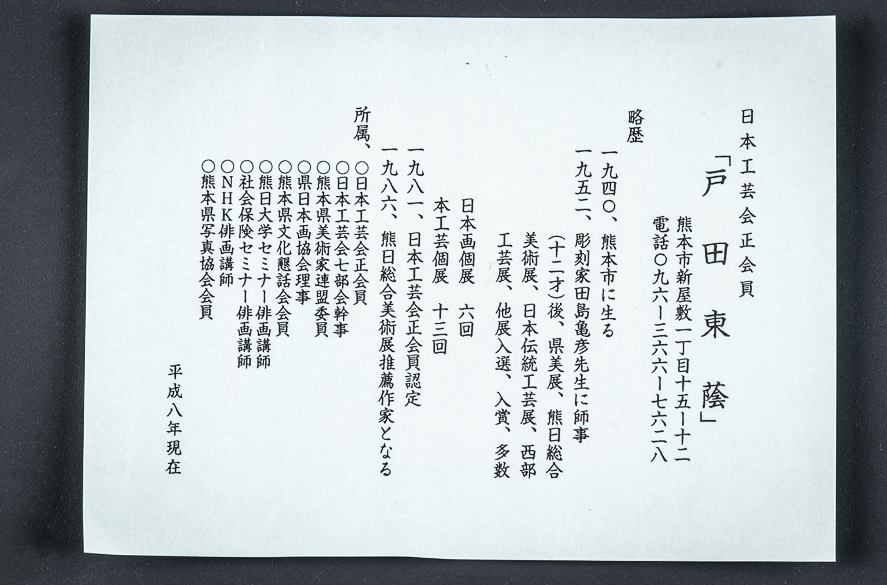 日本工芸会正会員
「戸田東蔭」
熊本市新屋敷一丁目十五ー十二
電話〇九六ー三六六ー七六二八
略歴
一九四〇、熊本市に生る
一九五二、彫刻家田島亀彦先生に師事
(十二才)後、県美展、熊日総合
美術展、日本伝統工芸展、西部
工芸展、他展入選、入賞、多数
日本画個展 六回
本工芸個展 十三回
一九八一、日本工芸会正会員認定
一九八六、熊日総合美術展推薦作家となる
所属、〇日本工芸会正会員
〇日本工芸会七部会幹事
〇熊本県美術家連盟委員
〇県日本画協会理事
〇熊本県文化懇話会会員
〇熊日大学セミナー俳画講師
〇社会保険セミナー俳画講師
〇NHK俳画講師
〇熊本県写真協會会員
平成八年現在